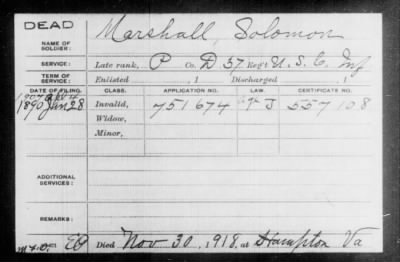 DEAD
NAME OF SOLDIER: Marshall, Solomon
SERVICE: Late rank, P Co. D 37 Reg't U. S. C. Inf
TERM OF SERVICE: Enlisted , 1 Discharged , 1
DATE OF FILING. CLASS. APPLICATION NO. LAW. CERTIFICATE NO.
1890 Jan 28 Invalid, 751674 J 557108
Widow,
Minor,
ADDITIONAL SERVICES:
REMARKS:
Died Nov 30, 1918, at Hampton Va